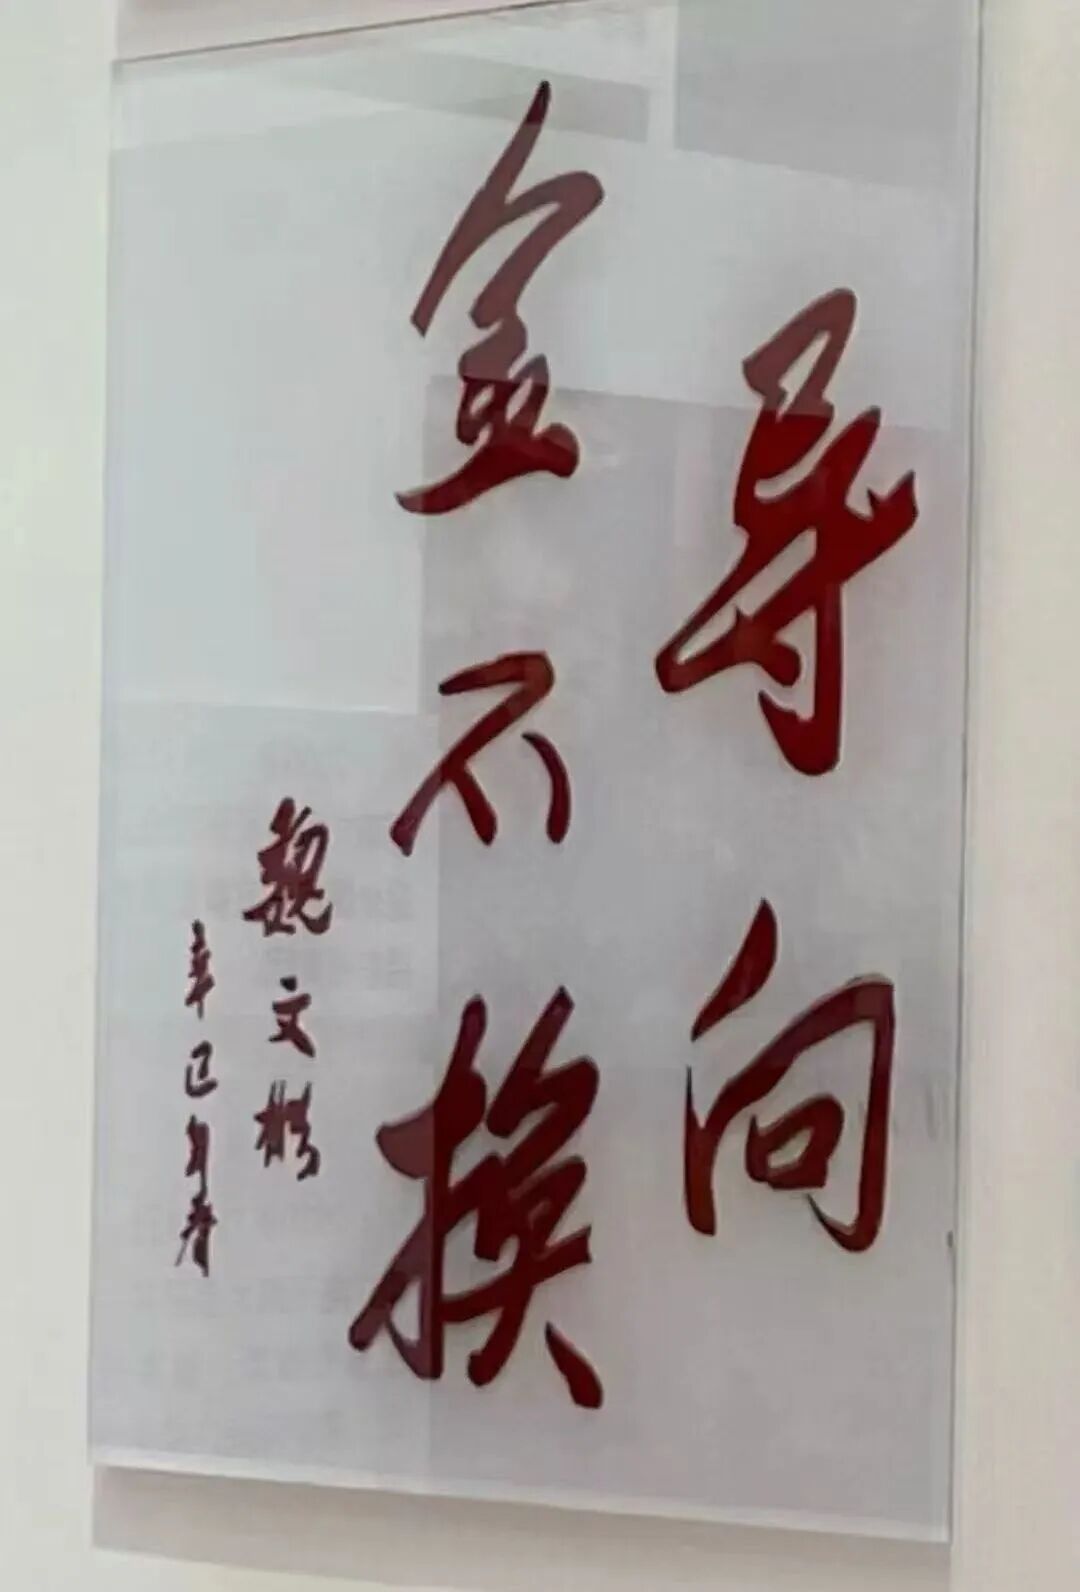 导向
金不换
魏文彬
辛巳年春